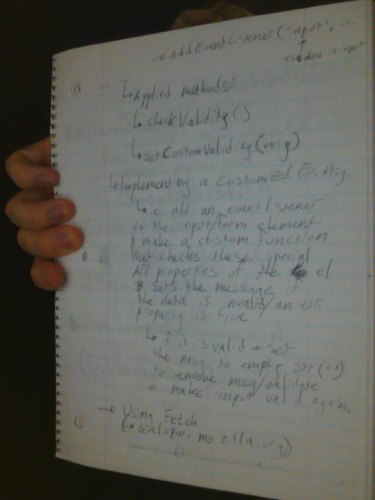 → addEventListener('input', ...
is input
↳ Applied methods:
↳ checkValidity()
↳ setCustomValidity(msg)
↳ Implementing a Customized Err. Msg.
↳ add an eventlistener
to the input/form element
& make a custom function
that checks these special
API properties of the el
& sets the message if
the data is invalid/an err.
property is true
↳ if it is valid → set
the msg to empty str ("")
to remove msg/validate
& make input valid again.
→ Using Fetch
(→ developer.mozilla.org)